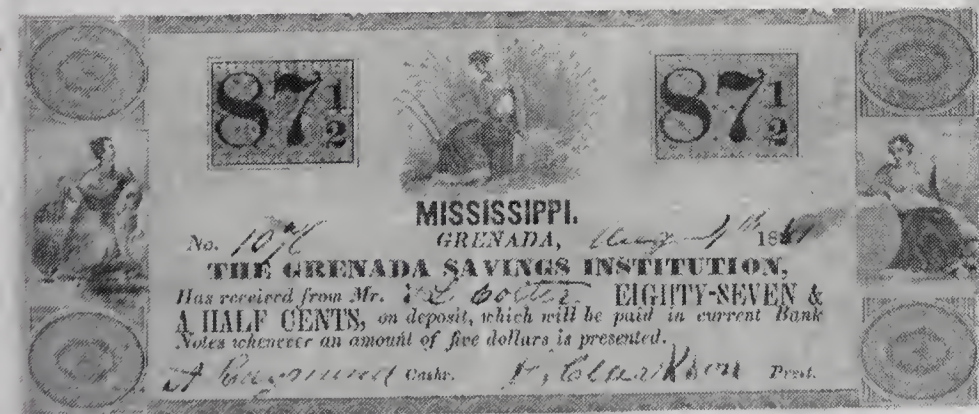 87 1/2 87 1/2
MISSISSIPPI.
No. GRENADA, 18
THE GRENADA SAVINGS INSTITUTION,
Has received from Mr. EIGHTY-SEVEN &
A HALF CENTS, on deposit, which will be paid in current Bank
Notes whenever an amount of five dollars is presented.
Cashr. Clarkson Prest.